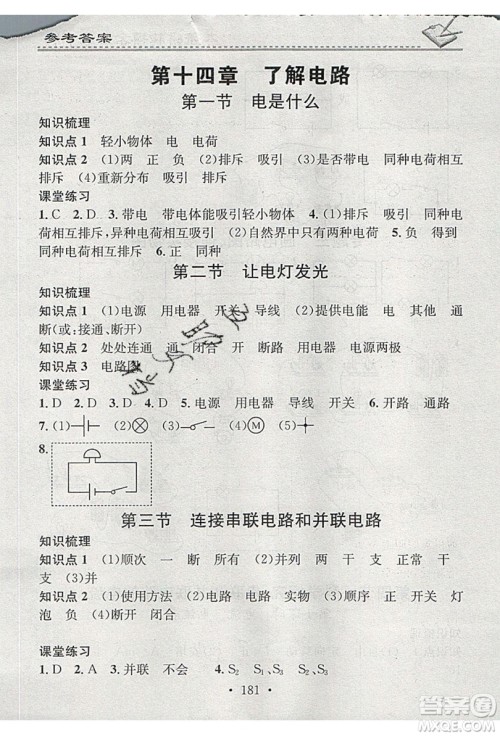 参考答案
第十四章　了解电路
第一节　电是什么
知识梳理
知识点 1　轻小物体　电　电荷
知识点 2　(1)两　正　负　(2)排斥　吸引　(3)是否带电　同种电荷相互
排斥　(4)重新分布　吸引　排斥
课堂练习
1. C　2. D　3. 带电　带电体能吸引轻小物体　4. (1)排斥　吸引　同种电
荷相互排斥,异种电荷相互吸引　(2)自然界中只有两种电荷　5. 负　得到
同种电荷相互排斥　6. 正　同种
第二节　让电灯发光
知识梳理
知识点 1　(1)电源　用电器　开关　导线　(2)提供电能　电　其他　通
断(或:接通、断开)
知识点 2　处处连通　通　闭合　开　断路　用电器　电源两极
知识点 3　电路图
课堂练习
1. D　2. D　3. A　4. D　5. 电源　用电器　导线　开关　6. 开路　通路
7. (1)　(2)　(3)　(4) M　(5)
8.
第三节　连接串联电路和并联电路
知识梳理
知识点 1　(1)顺次　一　断　所有　(2)并列　两　干　支　正常　干
支　(3)并
知识点 2　(1)使用方法　(2)电路　电路　实物　(3)顺序　正　开关　灯
泡　负　(4)断开　闭合
课堂练习
1. D　2. A　3. 并联　不会　4. S₂　S₁、S₃　S₃　S₁、S₂
· 181 ·
答案圈
MXQE.COM